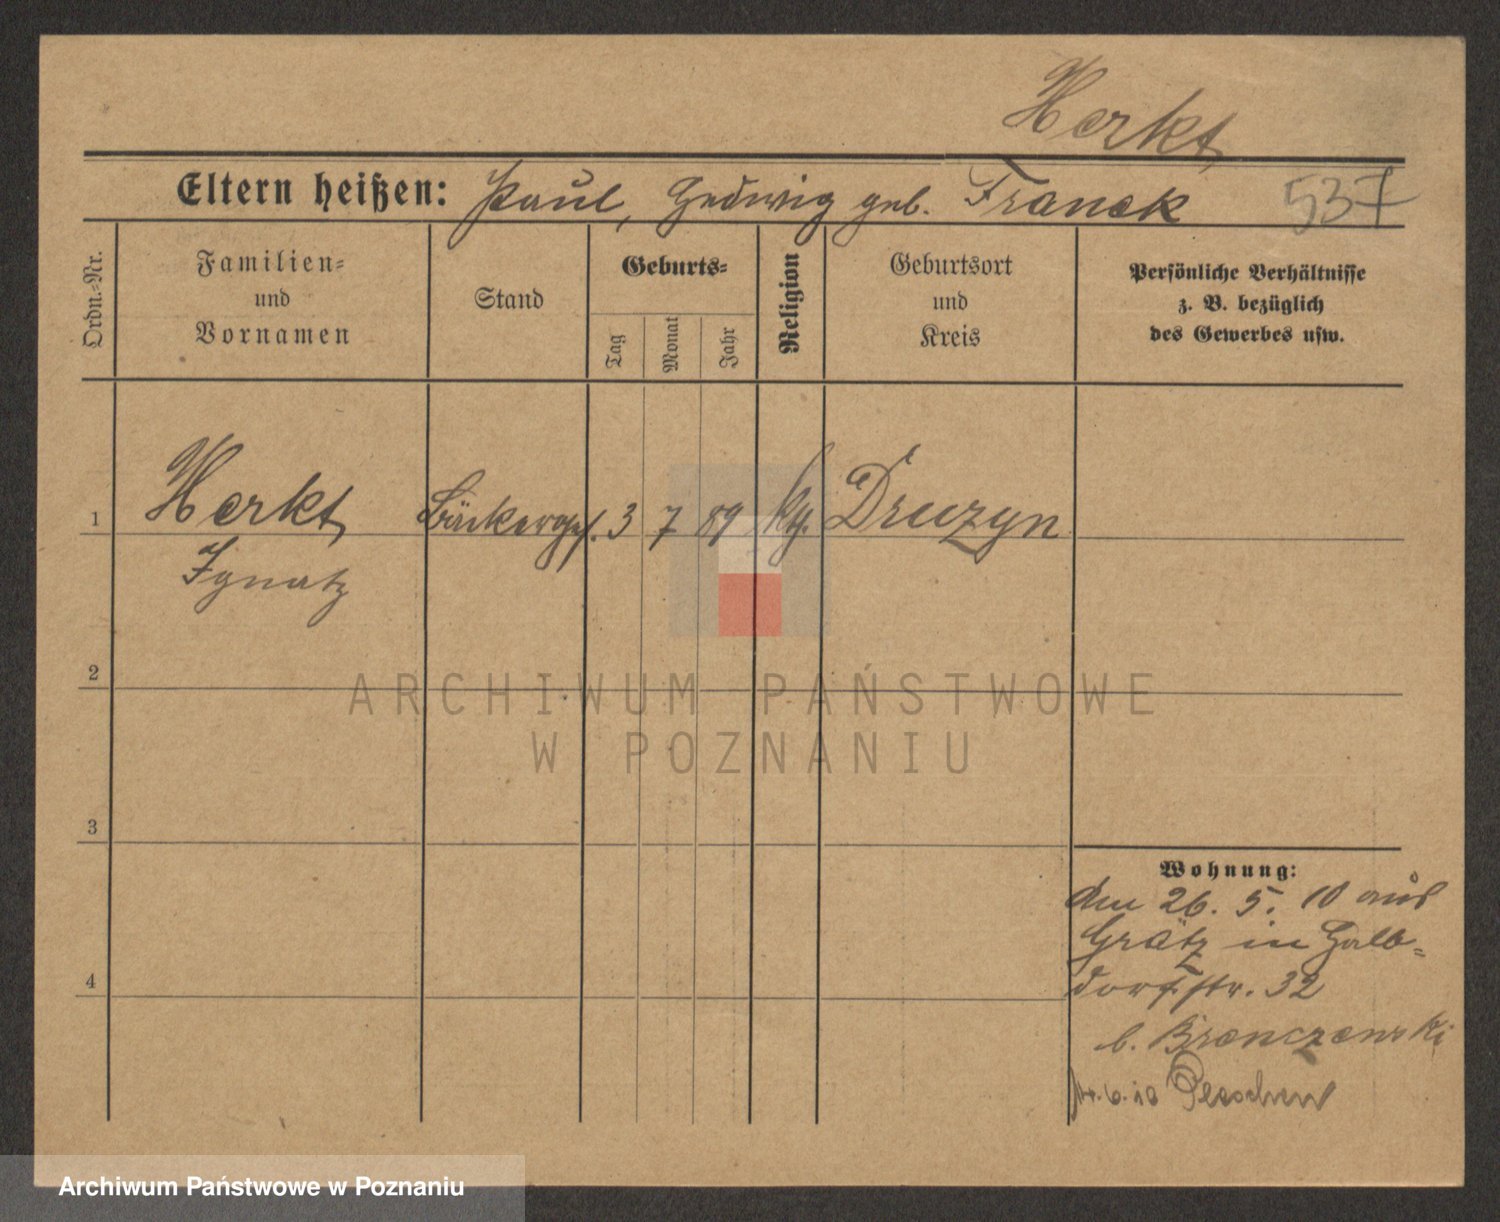 Herkt
Eltern heißen: Paul, Hedwig geb. Franck 537
Ordn.-Nr.
Familien-
und
Vornamen
Stand
Geburts-
Tag
Monat
Jahr
Religion
Geburtsort
und
Kreis
Persönliche Verhältnisse
z. B. bezüglich
des Gewerbes usw.
1 Herkt Bäckerges. 3 7 89 kg. Druzyn
Ignatz
2
ARCHIWUM PAŃSTWOWE
W POZNANIU
3
Wohnung:
den 26. 5. 10 aus
Grätz in Halb-
4
dorfstr. 32
b. Bronczewski
6. 10 Pleschen
Archiwum Państwowe w Poznaniu